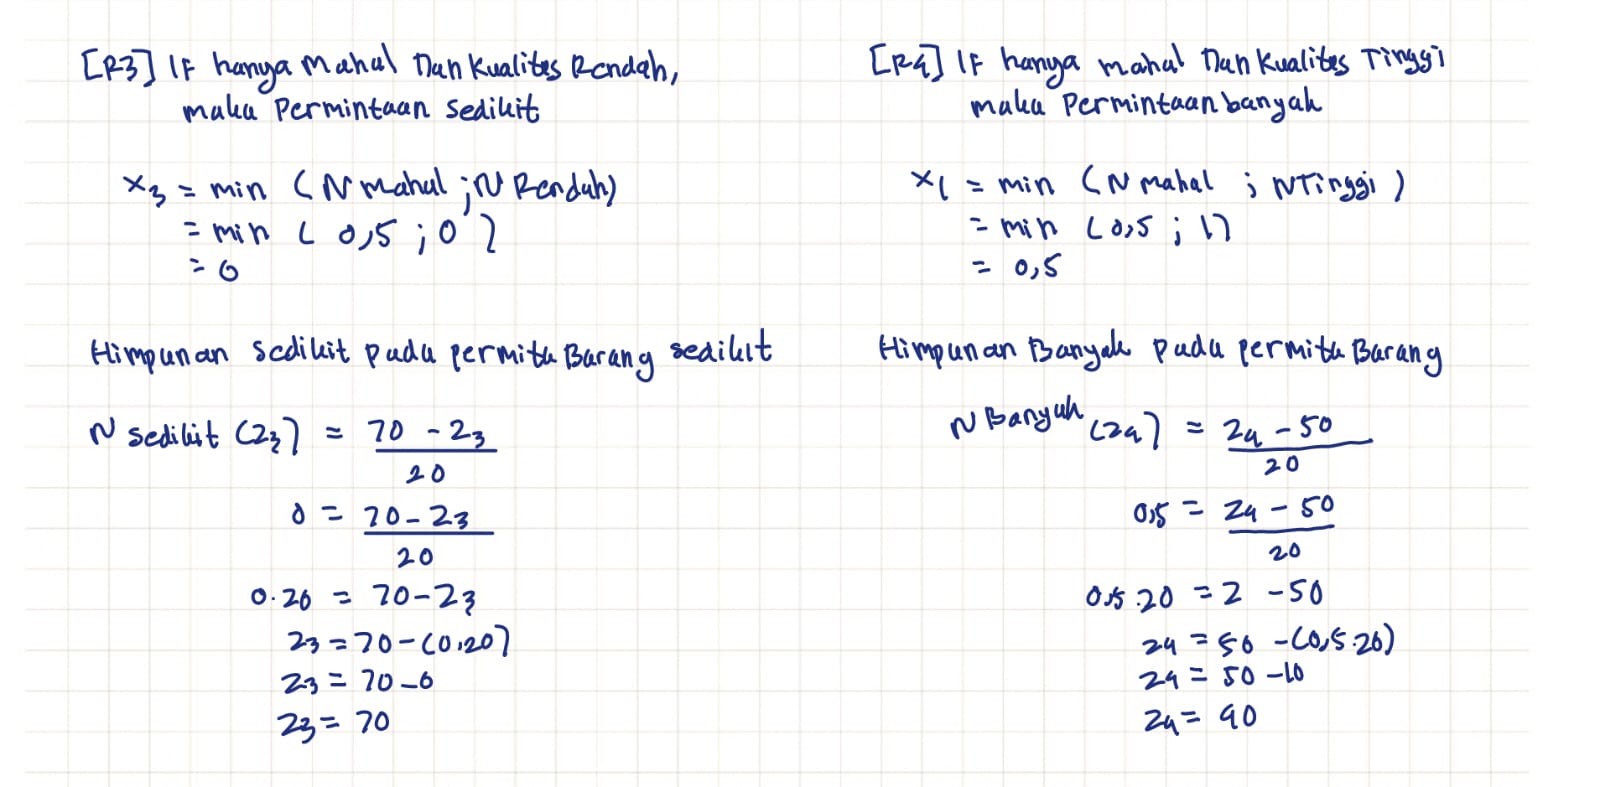 [R3] IF hanya Mahal Dan Kualitas Rendah,
maka Permintaan Sedikit
x3 = min (N Mahal ; N Rendah)
= min ( 0,5 ; 0 )
= 0
Himpunan sedikit pada permita Barang sedikit
N sedikit (z3) = 70 - z3
20
0 = 70 - z3
20
0.20 = 70 - z3
z3 = 70 - (0.20)
z3 = 70 - 0
z3 = 70
[R4] IF hanya mahal Dan Kualitas Tinggi
maka Permintaan banyak
x1 = min (N mahal ; N Tinggi )
= min (0,5 ; 1)
= 0,5
Himpunan Banyak pada permita Barang
N Banyak (z4) = z4 - 50
20
0,5 = z4 - 50
20
0,5.20 = z - 50
z4 = 50 - (0,5.20)
z4 = 50 - 10
z4 = 40